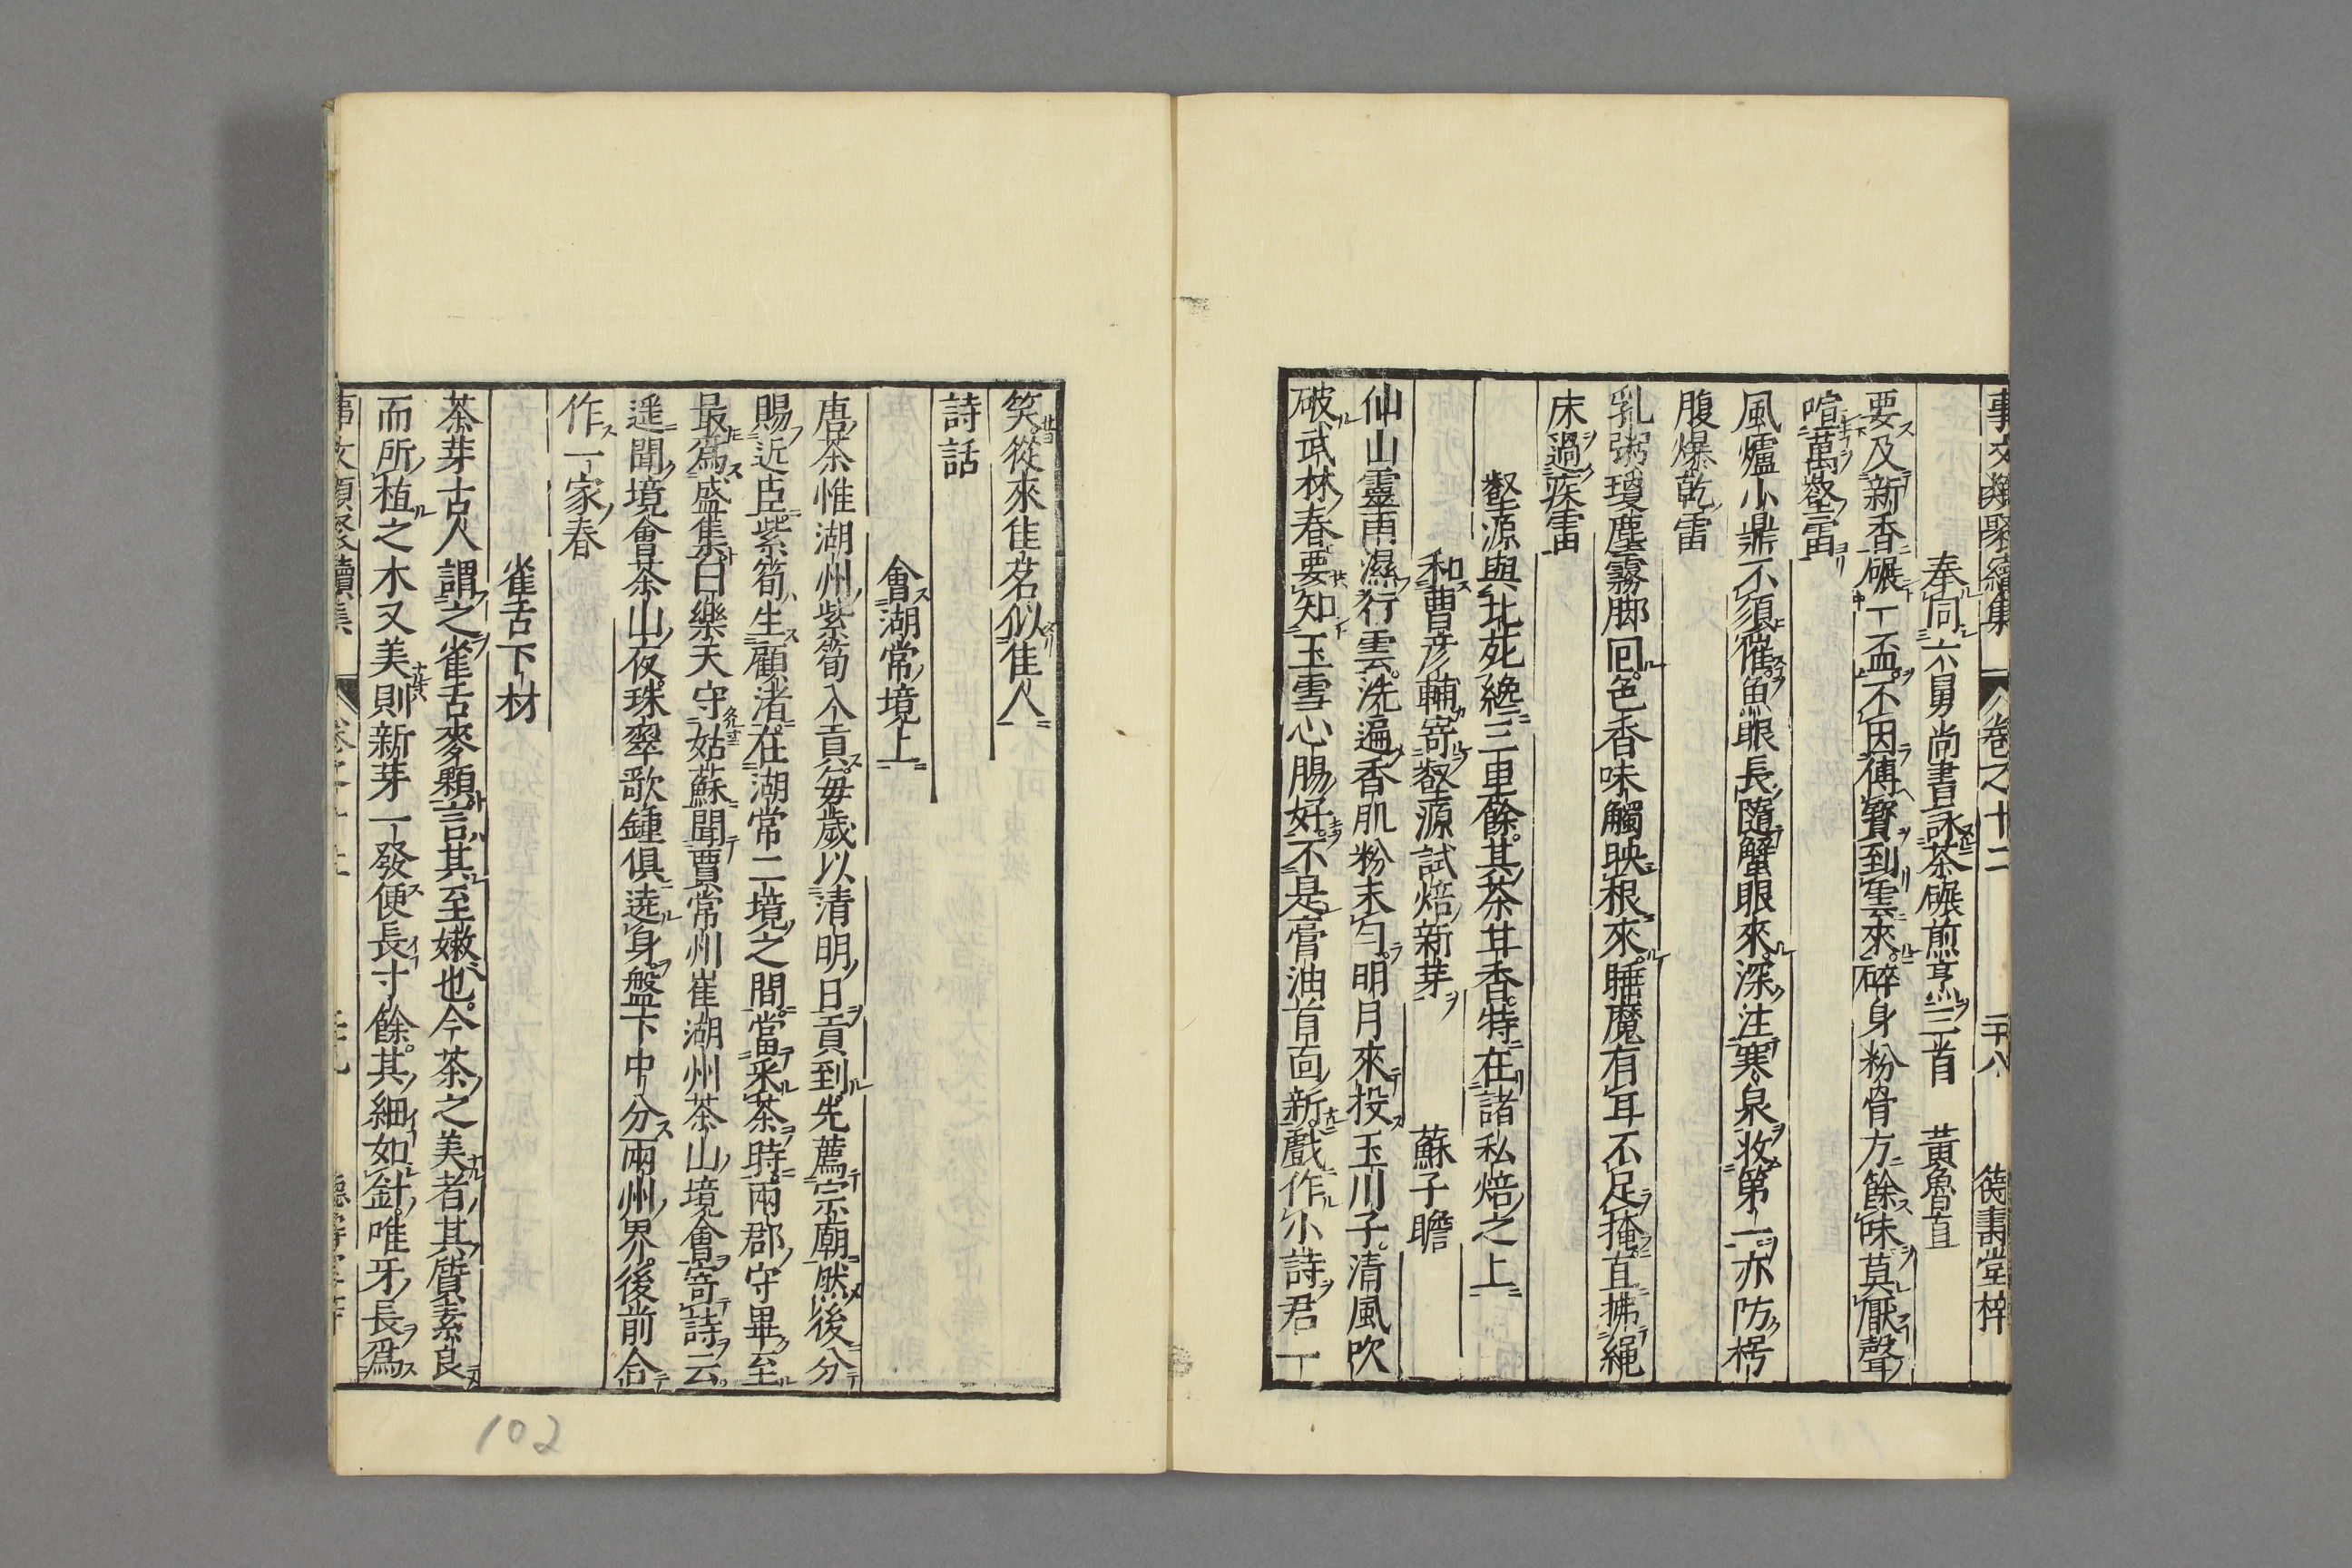 事文類聚續集 卷之十二 三十八 德壽堂梓
奉同六舅尚書詠茶碾煎烹三首 黃魯直
要及新香碾一盃不因傳寳到雲來碎身粉骨方餘味莫厭聲
喧萬壑雷
風爐小鼎不須催魚眼長隨蟹眼來深注寒泉收第二亦防枵
腹爆乾雷
乳粥瓊塵霧脚回色香味觸映根來睡魔有耳不足掩直拂繩
床過疾雷
壑源與北苑纔三里餘其茶甘香特在諸私焙之上
和曹彦輔寄壑源試焙新芽 蘇子瞻
仙山靈雨濕行雲洗遍香肌粉末勻明月來投玉川子清風吹
破武林春要知玉雪心腸好不是膏油首面新戲作小詩君一
笑從來佳茗似佳人
詩話
會湖常境上
唐茶惟湖州紫筍入貢每歲以清明日貢到先薦宗廟然後分
賜近臣紫筍生顧渚在湖常二境之間當采茶時兩郡守畢至
最爲盛集白樂天守姑蘇聞賈常州崔湖州茶山境會寄詩云
遥聞境會茶山夜珠翠歌鍾俱遶身盤下中分兩州界後前合
作一家春
雀舌下材
茶芽古人謂之雀舌麥顆言其至嫩也今茶之美者其質素良
而所植之木又美則新芽一發便長寸餘其細如針唯牙長爲
事文類聚續集 卷之十二